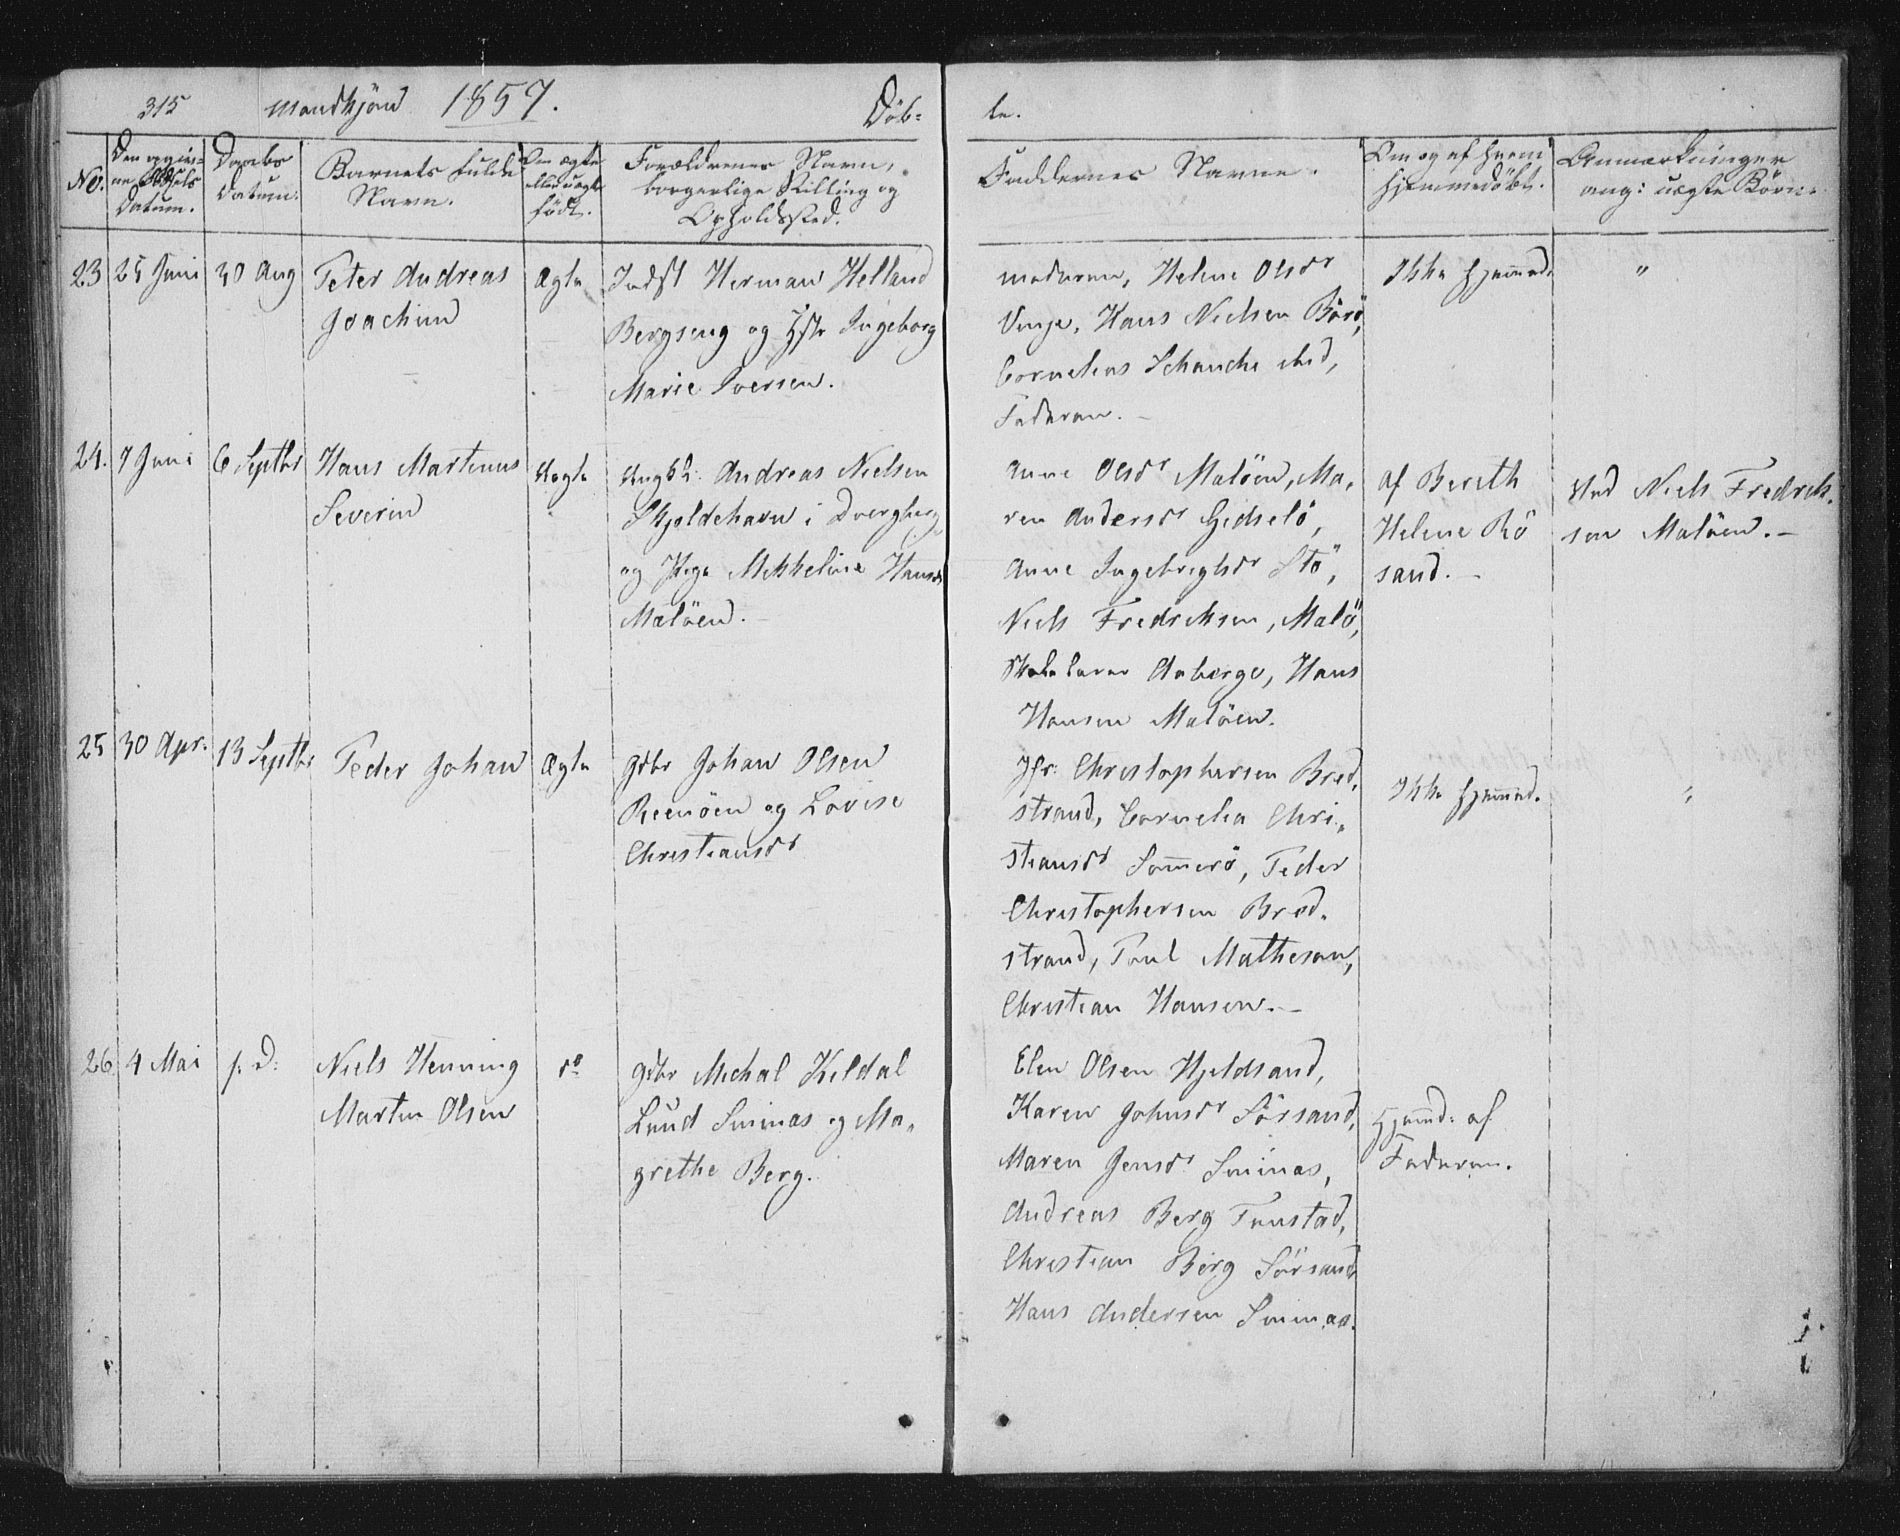 315 Mandkjön 1857. Döb- te.
No.
Den opgivne Fødsels Datum.
Daabs Datum.
Barnets fulde Navn.
Om ægte eller uægte født.
Forældrenes Navn, borgerlige Stilling og Opholdssted.
Faddernes Navne.
Om og af hvem hjemmedöbt.
Anmærkninger ang: uægte Börn.
23 25 Juni 30 Aug
Peter Andreas
Joachim
Ægte
Indst Herman Helland
Bergseng og Hstr Ingeborg
Marie Iversen.
Moderen, Helene Olsdr
Vinje, Hans Nielsen Börö,
Cornelius Schanche ibid,
Faderen. –
Ikke hjemmed.
"
24. 7 Juni 6 Septbr
Hans Martinus
Severin
Uægte
Ungk: Andreas Nielsen
Skjoldehavn i Dverberg
og Pige Mekkeline Hansdr
Malöen. –
Anne Olsdr Malöen, Ma,
ren Andersdr Gidselö,
Anne Ingebrigtsdr Stö,
Niels Fredriksen, Malö,
Skolelærer Aaberge, Hans
Hansen Malöen.
af Bereth
Helene Rö
sand. –
Ved Niels Fredrik,
sen Malöen. –
25 30 Apr. 13 Septbr
Peder Johan
Ægte
Gdbr Johan Olsen
Reenöen og Lovise
Christiansdr
Jfr: Christophersen Bred,
strand, Cornelia Chri,
stiansdr Sommerö, Peder
Christophersen Bred,
strand, Poul Mathesen,
Christian Hansen. –
Ikke hjemmed.
"
26 4 Mai s. D:
Niels Henning
Martin Olsen
do
Gdbr Michal Kildal
Lund Sminæs og Ma,
grethe Berg.
Elen Olsen Hjeldsand,
Karen Johnsdr Sörsand,
Maren Jensdr Sminæs,
Andreas Berg Tunstad,
Christian Berg Sörsand
Hans Andersen Sminæs.
Hjemmd: af
Faderen.